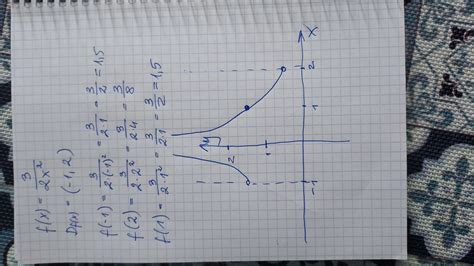 f(x) = 3/2x²
Df(x) = (-1, 2)
f(-1) = 3/2·(-1)² = 3/2·1 = 3/2 = 1,5
f(2) = 3/2·2² = 3/2·4 = 3/8
f(1) = 3/2·1² = 3/2·1 = 3/2 = 1,5
y
2
1
-1 1 2 x